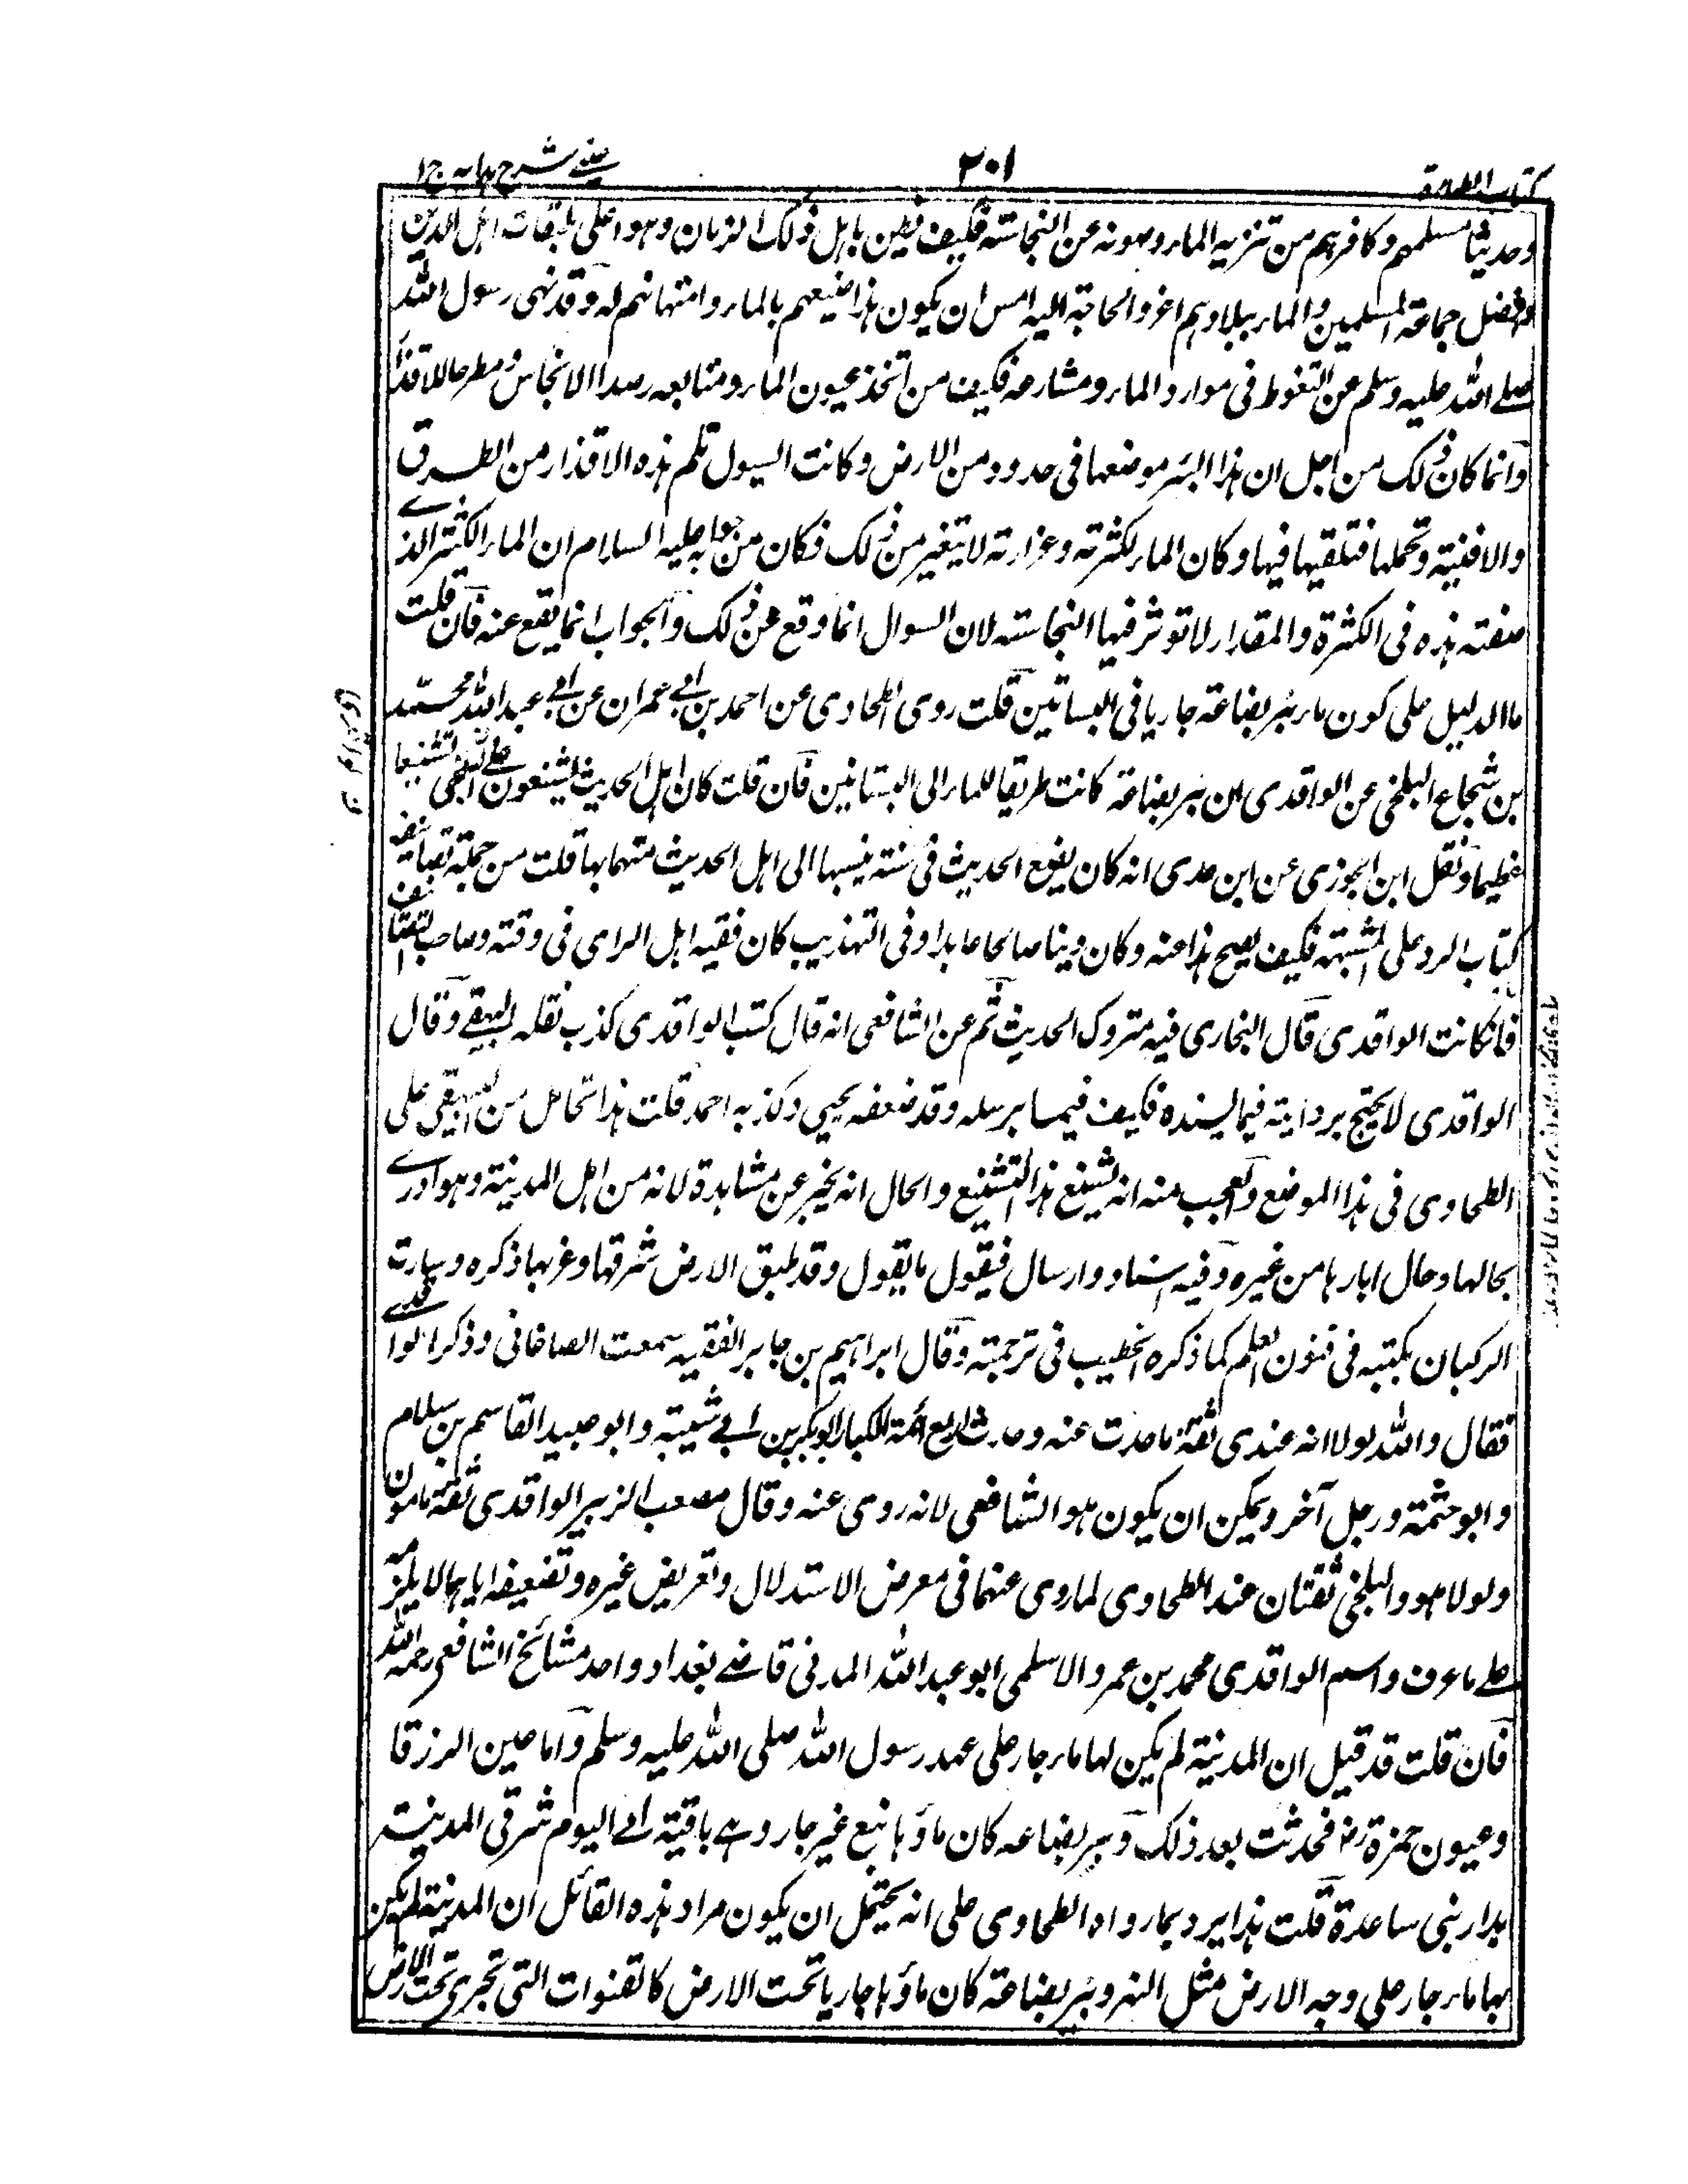 كتاب الطهارة
٢٠١
عينى شرح هدايه ج ١
وحديثا مسلمهم وكافرهم من تنزيه الماء وصونه عن النجاسة فكيف يظن باهل ذلك الزمان وهو اعلى طبقات اهل الدين
وافضل جماعة المسلمين والماء ببلادهم اعز والحاجة اليه امس ان يكون هذا صنيعهم بالماء وامتهانهم له وقد نهى رسول الله
صلے الله عليه وسلم عن التغوط فى موارد الماء ومشارعه فكيف من اتخذ عيون الماء ومنابعه رصدا للانجاس ومطرحا للاقذار
وانما كان ذلك من اجل ان هذا البئر موضعها فى حدور من الارض وكانت السيول تكم هذه الاقذار من الطرق
والافنية وتحملها فتلقيها فيها وكان الماء لكثرته وغزارته لا يتغير من ذلك فكان من جوابه عليه السلام ان الماء الكثير الذے
صفته هذه فى الكثرة والمقدار لا توثر فيها النجاسة لان السوال انما وقع عن ذلك والجواب انما يقع عنه فان قلت
ما الدليل على كون ماء بئر بضاعة جاريا فى البساتين قلت روى الطحاوى عن احمد بن ابے عمران عن ابے عبد الله محمد
بن شجاع البلخى عن الواقدى ان بئر بضاعة كانت طريقا للماء الى البساتين فان قلت كان اهل الحديث يشنعون علے البلخى تشنيعا
عظيما ونقل ابن الجوزى عن ابن عدى انه كان يضع الحديث فى سنة ينسبها الى اهل الحديث متهما بها قلت من جملة تصانيفه
كتاب الرد على المشبهة فكيف يصح هذا عنه وكان دينا صالحا عابدا وفى التهذيب كان فقيه اهل الراى فى وقته وصاحب التصانيف
فان كانت الواقدى قال البخارى فيه متروك الحديث ثم عن الشافعى انه قال كتب الواقدى كذب نقله البيهقے وقال
الواقدى لا يحتج برواية فيما يسنده فكيف فيما يرسله وقد ضعفه يحيى وكذبه احمد قلت هذا تحامل من البيهقى على
الطحاوى فى هذا الموضع والعجب منه انه يشنع هذا التشنيع والحال انه يخبر عن مشاهدة لانه من اهل المدينة وهو ادرے
بحالها وحال ابارها من غيره وفيه اسناد وارسال فيقول ما يقول وقد طبق الارض شرقها وغربها ذكره وسارت
الركبان بكتبه فى فنون العلم كما ذكره الخطيب فى ترجمته وقال ابراهيم بن جابر الفقيه سمعت الصاغانى وذكر الواقدے
فقال والله لولا انه عندى ثقة ما حدث عنه وحدث اربع ائمة الكبار ابو بكر بن ابے شيبة وابو عبيد القاسم بن سلام
وابو حثمة ورجل آخر ويمكن ان يكون هو الشافعى لانه روى عنه وقال مصعب الزبير الواقدى ثقة مامون
ولولا هو والبلخى ثقتان عند الطحاوى لما روى عنهما فى معرض الاستدلال وتعريض غيره وتضعيفه اياهما لا يلزمه
علے ما عرف واسم الواقدى محمد بن عمرو الاسلمى ابو عبد الله المدنى قاضے بغداد واحد مشائخ الشافعى رحمه الله
فان قلت قد قيل ان المدينة لم يكن لها ماء جار على عهد رسول الله صلى الله عليه وسلم واما عين الزرقا
وعيون حمزة رض فحدثت بعد ذلك وبير بضاعه كان ماؤها نبع غير جار وهے باقية الے اليوم شرقى المدينة
بدار بنى ساعدة قلت هذا يرد بما رواه الطحاوى على انه يحتمل ان يكون مراد هذه القائل ان المدينة لم يكن
بها ماء جار على وجه الارض مثل النهر وبئر بضاعة كان ماؤها جاريا تحت الارض كالقنوات التى تجرى تحت الارض